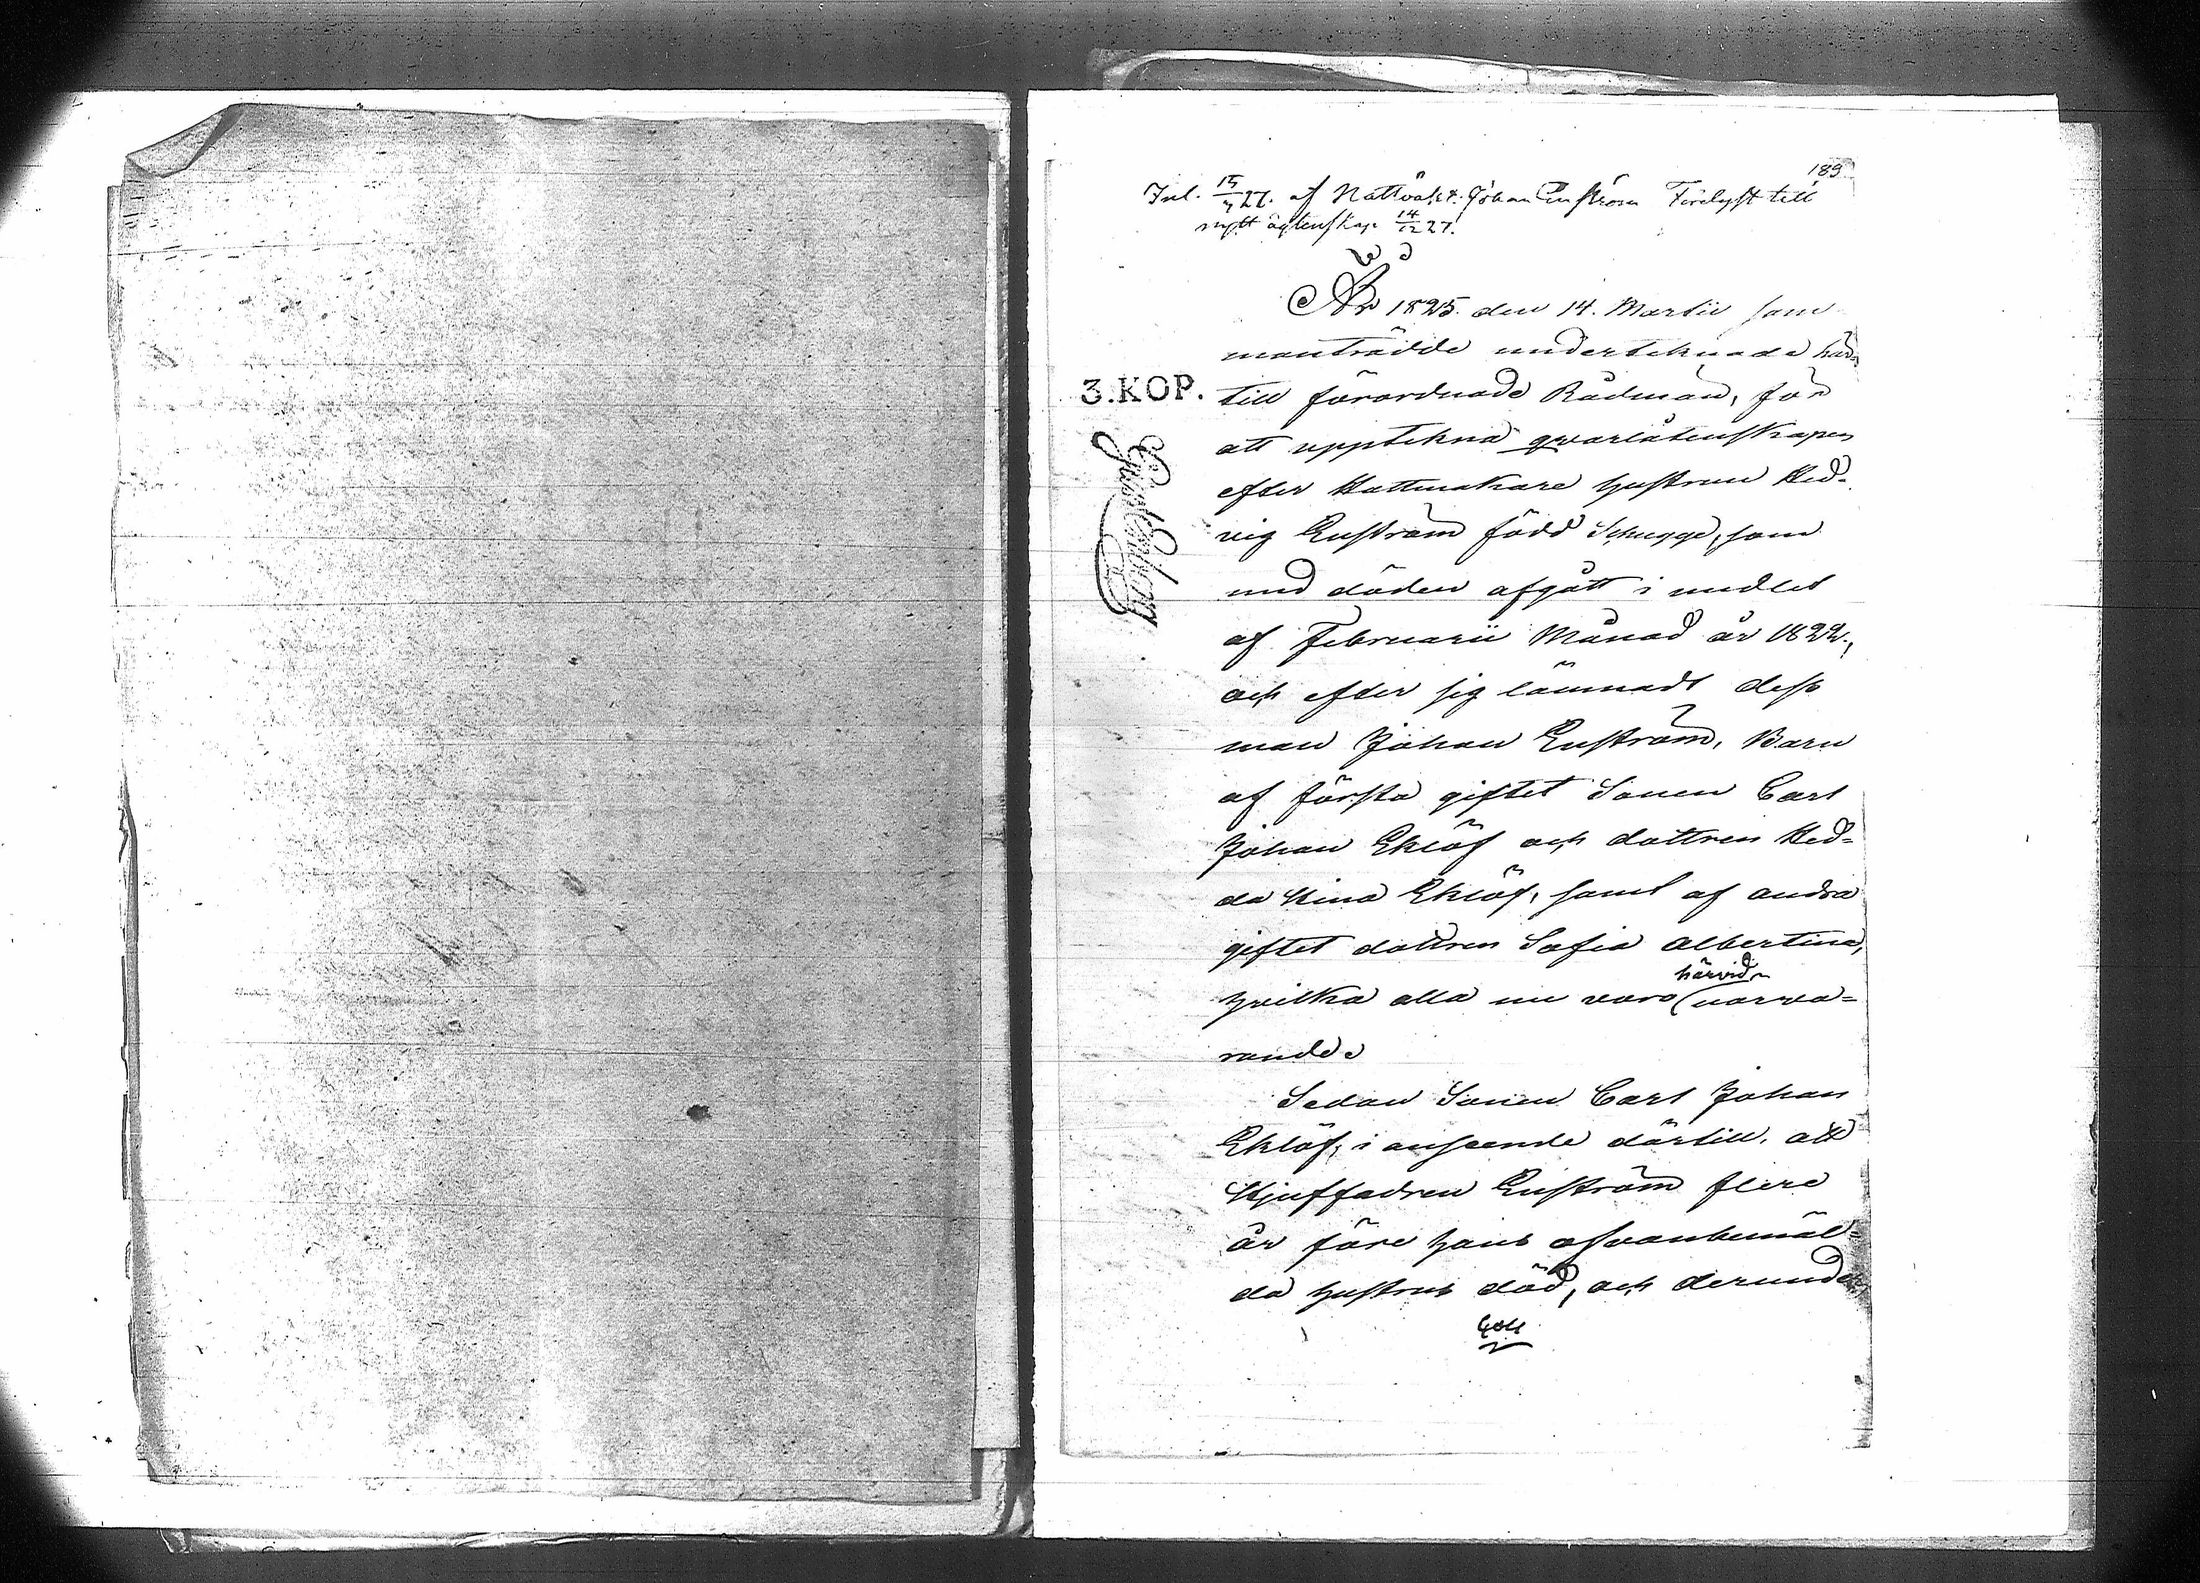 189
Inl. 15/4 27. af Nattvakt. Johan Enström Förelyst till
nytt ägtenskap 14/12 27.
År 1825. den 14. Martii sam
manträdde undertecknade här
3.KOP.
till förordnade Rådmän, för
att uppteckna qvarlåtenskapen
efter Hattmakare hustrun Hed-
vig Enström född Schugge, som
med döden afgått i medlet
af Februarii Månad år 1822.,
och efter sig lämnadt dess
man Johan Enström, Barn
af första giftet Sonen Carl
Johan Eklöf och dottren Hed-
da Stina Eklöf, samt af andra
giftet dottren Sofia Albertina,
hvilka alla nu voro (härvid narva-
rande.
Sedan Sonen Carl Johan
Eklöf, i anseende därtill, att
Stjuffadren Enström flere
år före hans ofvanbemäl-
da hustrus död, och derunder